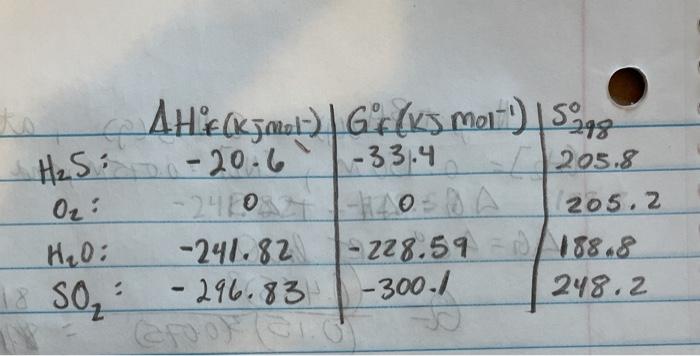 ΔH°f (KJ mol-) | G°f (KJ mol-1) | S°298
H2S: -20.6 | -33.4 | 205.8
O2: 0 | 0 | 205.2
H2O: -241.82 | -228.59 | 188.8
SO2: -296.83 | -300.1 | 248.2